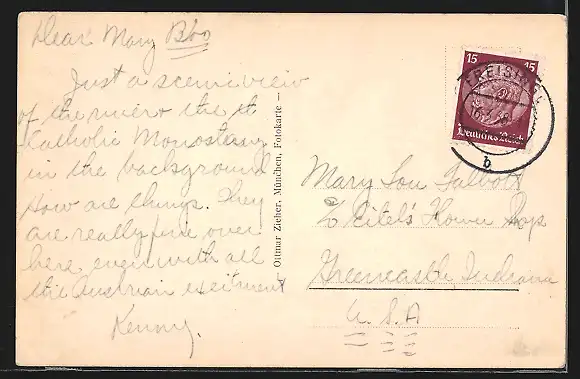 Dear Mary Boo
Just a scenic view
of the river & the
Catholic Monastery
in the background
How are things. They
are really fine over
here even with all
the Austrian exeitment
Kenny.
Ottmar Zieher, München, Fotokarte
15 15
Deutsches Reich
FREISING
b
Mary Lou Talbott
% Eitel's Flower Shop
Greencastle, Indiana
U.S.A